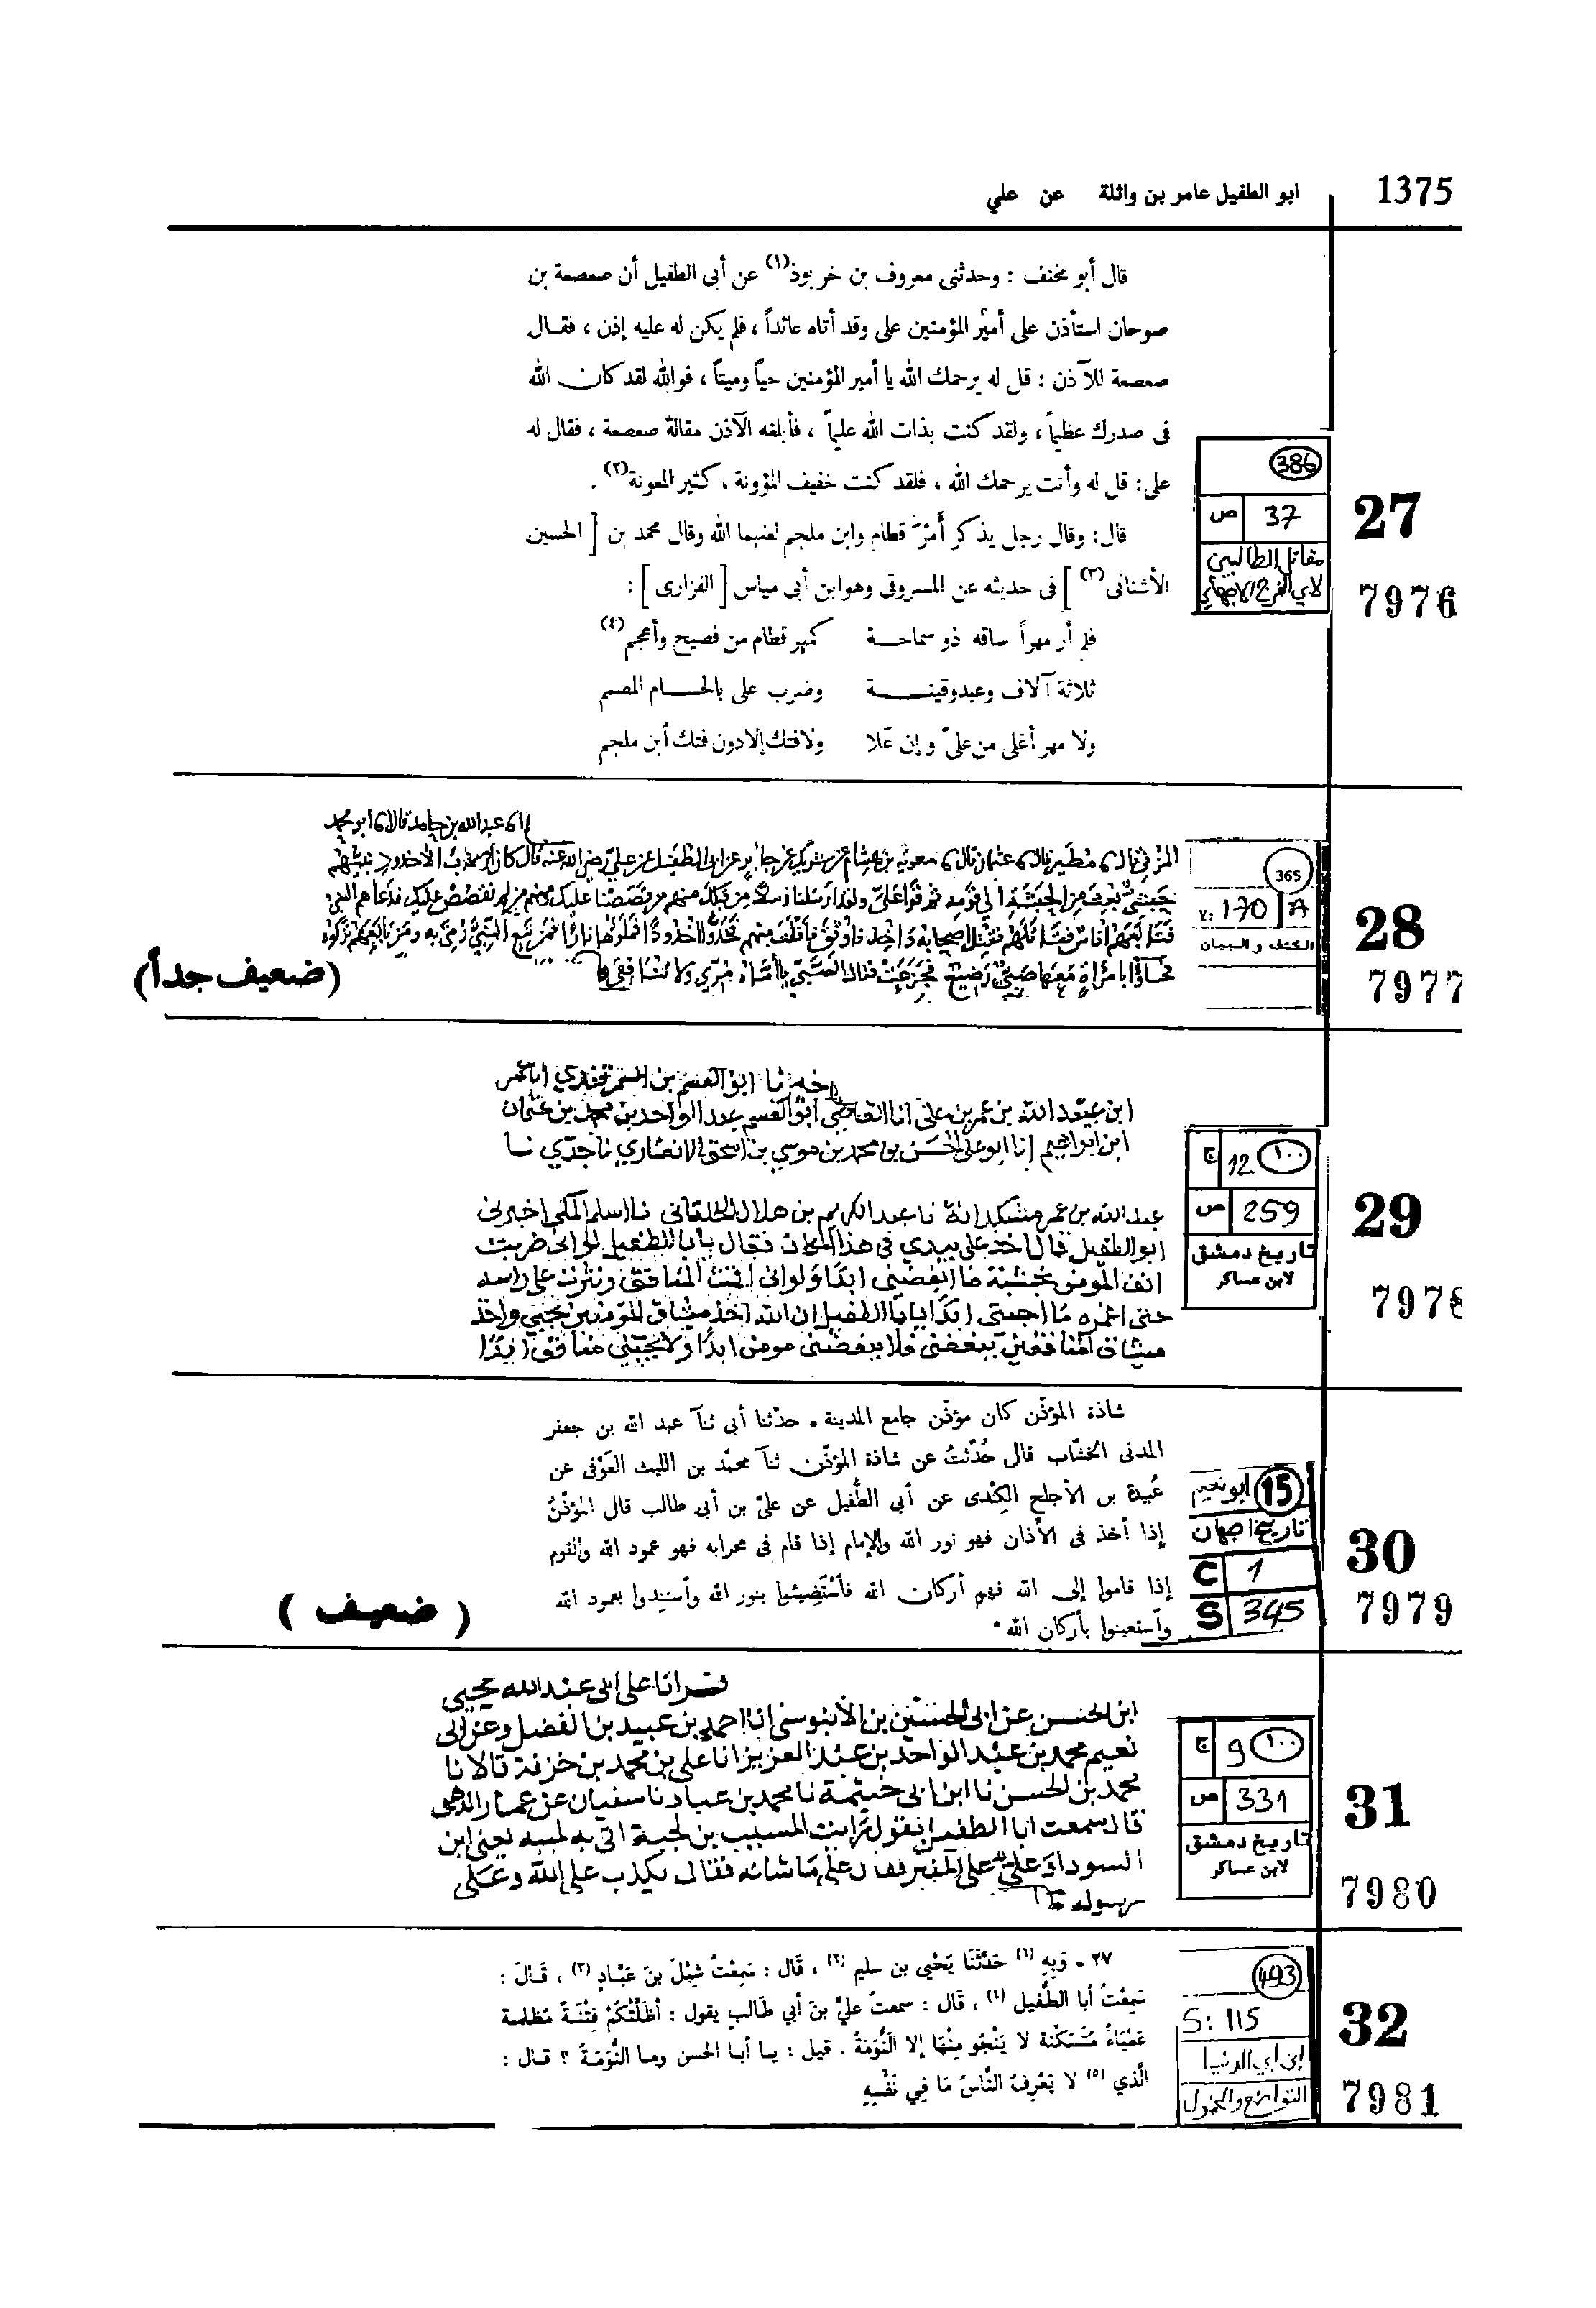 1375
ابو الطفيل عامر بن واثلة عن علي
قال أبو مخنف : وحدثنى معروف بن خربوذ(١) عن أبى الطفيل أن صعصعة بن
صوحان استأذن على أمير المؤمنين على وقد أتاه عائداً ، فلم يكن له عليه إذن ، فقال
صعصعة للآذن : قل له يرحمك الله يا أمير المؤمنين حياً وميتاً ، فوالله لقد كان الله
فى صدرك عظيماً ، ولقد كنت بذات الله عليماً ، فأبلغه الآذن مقالة صعصعة ، فقال له
على : قل له وأنت يرحمك الله ، فلقد كنت خفيف المؤونة ، كثير المعونة(٢) .
قال : وقال رجل يذكر أمرَ قطام وابن ملجم لعنهما الله وقال محمد بن [ الحسين
الأشنانى(٣) ] فى حديثه عن المسروقى وهو ابن أبى مياس [ الفزارى ] :
فلم أر مهراً ساقه ذو سماحة كمهر قطام من فصيح وأعجم(٤)
ثلاثة آلاف وعبد وقينة وضرب على بالحسام المصمم
ولا مهر أغلى من علىّ وإن غلا ولا فتك إلا دون فتك ابن ملجم
386
37 ص
مقاتل الطالبيين
لابي الفرج الاصبهاني
27
7976
عبدالله بن حامد قال ابو محمد
المزني قال مطير قال عثمان قال معوية بن هشام عن شريك عن جابر عن ابي الطفيل عن علي رضي الله عنه قال كان اصحاب الاخدود نبيهم
حبشي بعث من الحبشة الي قومه ثم قرأ علي ولقد ارسلنا رسلا من قبلك منهم من قصصنا عليك ومنهم من لم نقصص عليك فدعاهم النبي
365
170 A
الكشف و البيان
28
7977
(ضعيف جداً)
ابو القسم بن السمرقندي انا عمر
ابن عبيد الله بن عمر بن علي انا القاضي ابو القسم عبد الواحد بن محمد بن عثمان
ابن ابراهيم انا ابو علي الحسن بن محمد بن موسي بن اسحق الانصاري نا جدي نا
عبد الله بن عمر مشكدانة نا عبد الكريم بن هلال الخلقاني نا اسلم المكي اخبرني
ابو الطفيل قال اخذ علي بيدي في هذا المكان فقال يا با الطفيل لو اني ضربت
انف المؤمن بخشبة ما ابغضني ابدا ولو اني اقمت المنافق ونثرت على راسه
حتى اغمره ما احبني ابدا يا با الطفيل ان الله اخذ ميثاق المؤمنين بحبي واخذ
ميثاق المنافقين ببغضي فلا يبغضني مومن ابدا ولا يحبني منافق ابدا
١٠٠ 12 ج
259 ص
تاريخ دمشق
لابن عساكر
29
7978
شاذة المؤذّن كان مؤذّن جامع المدينة . حدّثنا أبى ثنآ عبد الله بن جعفر
المدنى الخشّاب قال حُدّثتُ عن شاذة المؤذّن ثنآ محمّد بن الليث العَوْفى عن
عُبيدة بن الأجلح الكِنْدى عن أبى الطُّفيل عن علىّ بن أبى طالب قال المؤذّنُ
إذا أخذ فى الأذان فهو نور الله والإمام إذا قام فى محرابه فهو عمود الله والقوم
إذا قاموا إلى الله فهم أركان الله فاَسْتَضيئوا بنور الله وأستنِدوا بعمود الله
وأستعينوا بأركان الله .
ابو نعيم 15
تاريخ اصبهان
C 1
S 345
30
7979
( ضعيف )
قرانا على ابى عبد الله يحيى
ابن الحسن عن ابى الحسين بن الآبنوسى انا احمد بن عبيد بن الفضل وعن ابى
نعيم محمد بن عبد الواحد بن عبد العزيز انا على بن محمد بن خزفة قالا نا
محمد بن الحسن نا ابن ابى خيثمة نا محمد بن عباد نا سفيان عن عمار الدهنى
قال سمعت ابا الطفيل يقول رايت المسيب بن نجبة اتى به لببه يعنى ابن
السودا وعلى على المنبر فقال على ما شانه فقال يكذب على الله وعلى
رسوله
١٠٠ 9 ج
331 ص
تاريخ دمشق
لابن عساكر
31
7980
٢٧ - وَبِهِ (١) حَدَّثَنَا يَحْيى بن سليم (٢) ، قَال : سَمِعْتُ شِبْلَ بنَ عَبَّادٍ (٣) ، قَالَ :
سَمِعْتُ أبا الطُّفَيل (٤) ، قَال : سمعتُ عليَّ بنَ أبي طَالبٍ يقول : أظَلَّتْكُمْ فِتْنَةٌ مُظلمة
عَمْيَاءُ مُتَسَكِّنة لا يَنْجُو مِنْهَا إلا النُّوَمَةُ . قيل : يا أبا الحسن وما النُّوَمَةُ ؟ قال :
الَّذي (٥) لا يَعْرِفُ النَّاسُ مَا فِي نَفْسِهِ
493
S: 115
ابن ابي الدنيا
التواضع والخمول
32
7981